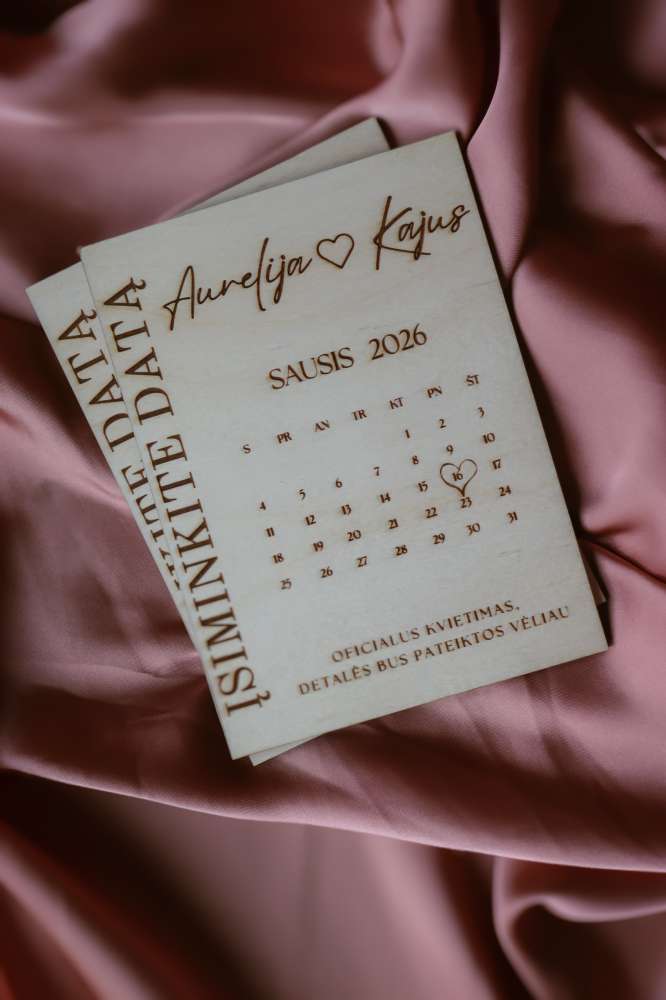 Aurelija Kajus
ĮSIMINKITE DATĄ
SAUSIS 2026
S PR AN TR KT PN ŠT
1 2 3
4 5 6 7 8 9 10
11 12 13 14 15 16 17
18 19 20 21 22 23 24
25 26 27 28 29 30 31
OFICIALUS KVIETIMAS,
DETALĖS BUS PATEIKTOS VĖLIAU
KITE DATĄ